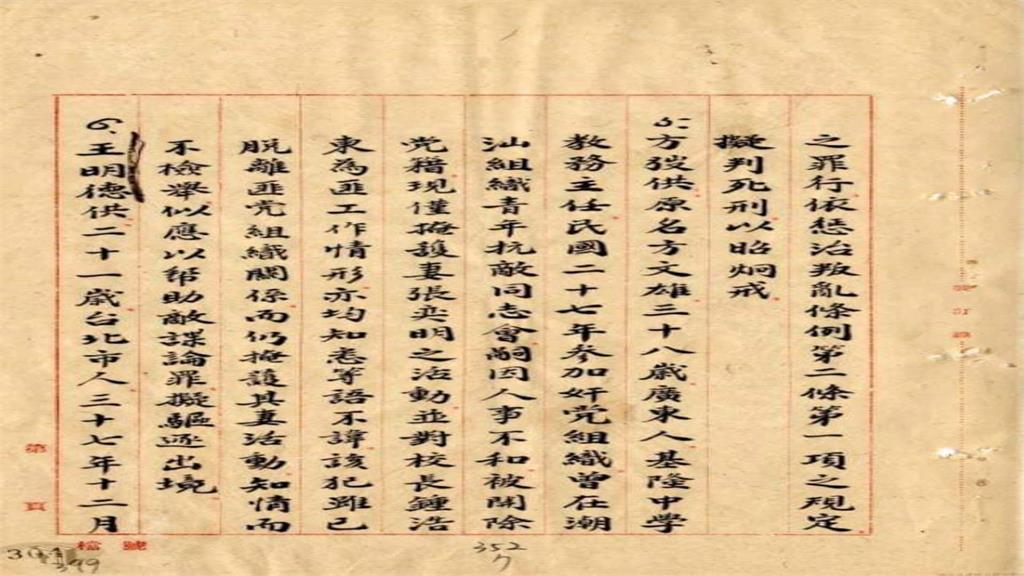 之罪行依懲治叛亂條例第二條第一項之規定
擬判死刑以昭炯戒
5.方弢供原名方文雄三十八歲廣東人基隆中學
教務主任民國二十七年參加奸党組織曾在潮
汕組織青年抗敵同志會嗣因人事不和被開除
党籍現僅掩護妻張奕明之活動並對校長鍾浩
東為匪工作情形亦均知悉等語不諱該犯雖已
脫離匪党組織關係而仍掩護其妻活動知情而
不檢舉似應以幫助敵諜論罪擬驅逐出境
6.王明德供二十一歲台北市人三十七年十二月
裝訂線
第 頁
檔 號
352
7
399